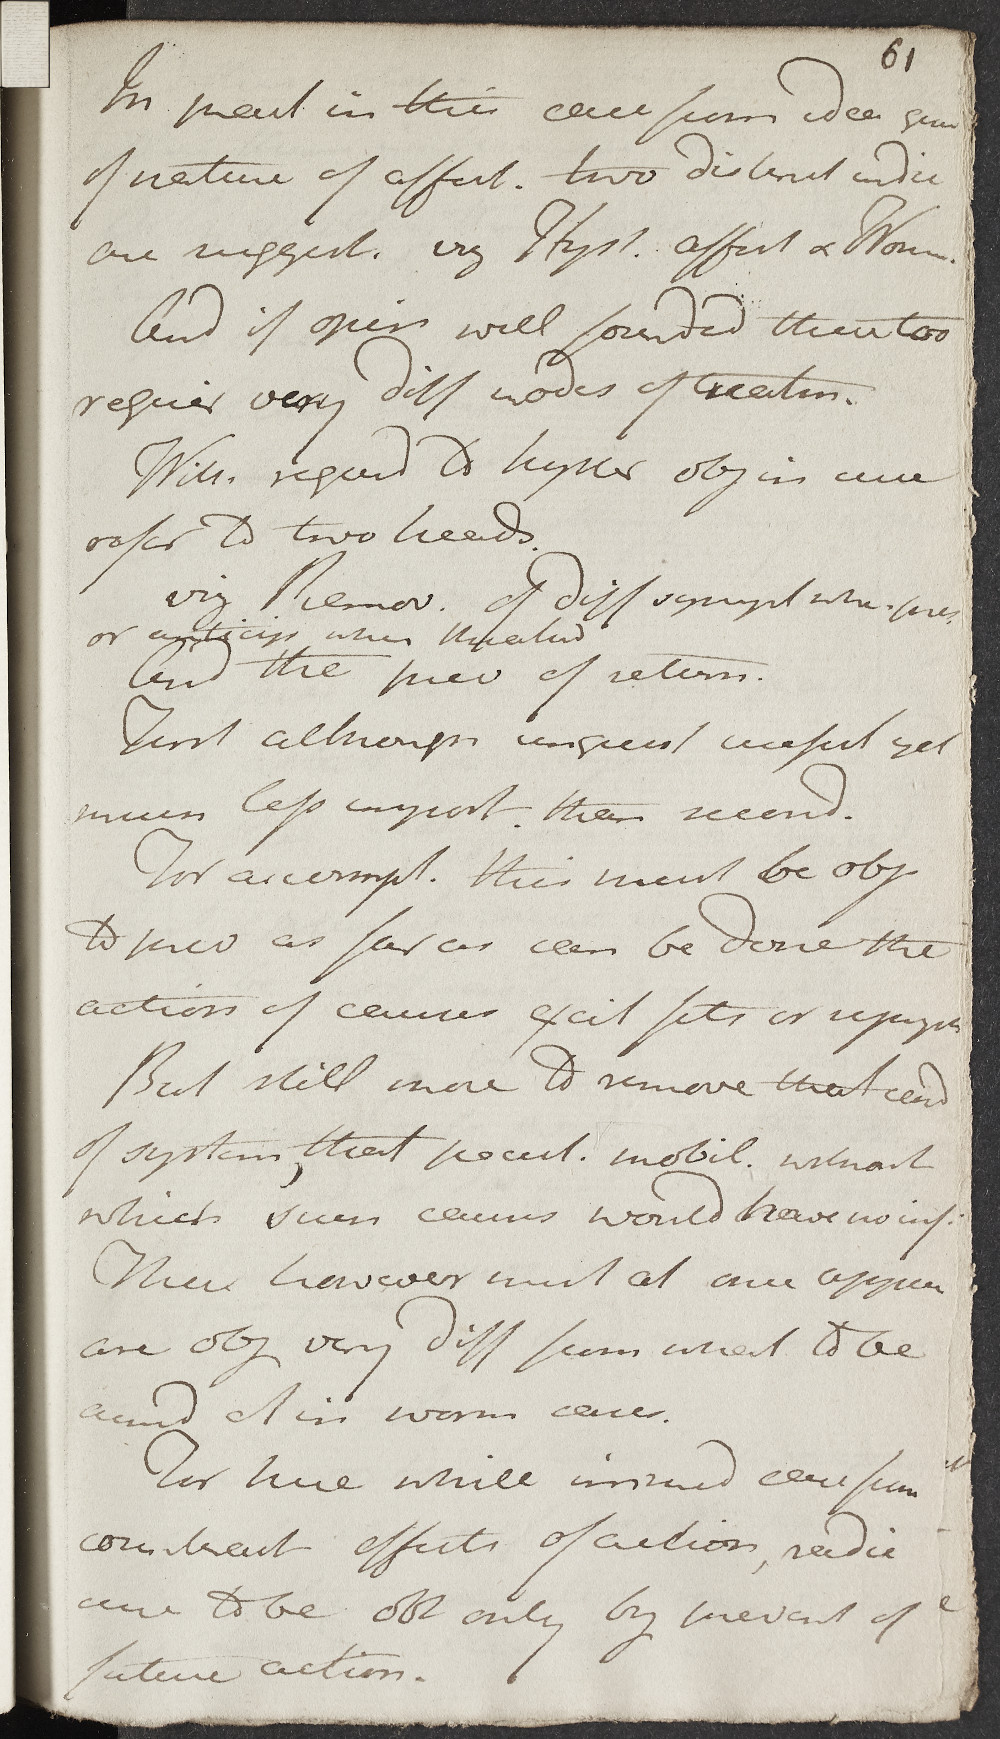 61
In pract in this case from idea given
of nature of affect. two distinct indic
are suggest. viz Hyst. affect & Worm.
And if opin well founded these two
requir very diff modes of treatm.
With regard to hyster obj in cure
refer to two heads.
viz Remov. of diff sympt when pres
or anticip when threatend
And the prev of return.
First although unquest useful yet
much less import. than second.
For accompl. this must be obj
to prev as far as can be done the
action of causes excit fits or sympt
But still more to remove that cond
of system, that pecul. mobil. without
which such causes would have no inf.
These however must at once appear
are obj very diff from what to be
aimd at in worm cases.
For here while immed cure from
counteract effects of action, radic
cure to be obt only by prevent of
future action.